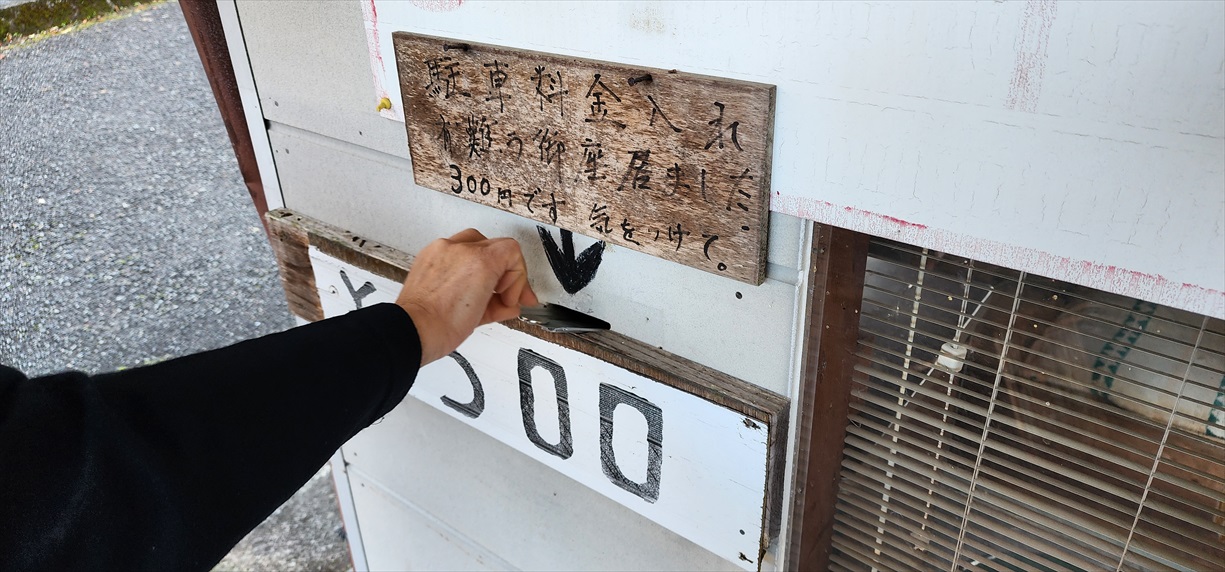 駐車料金入れ
有難う御座居ました。
300円です 気をつけて。
¥300